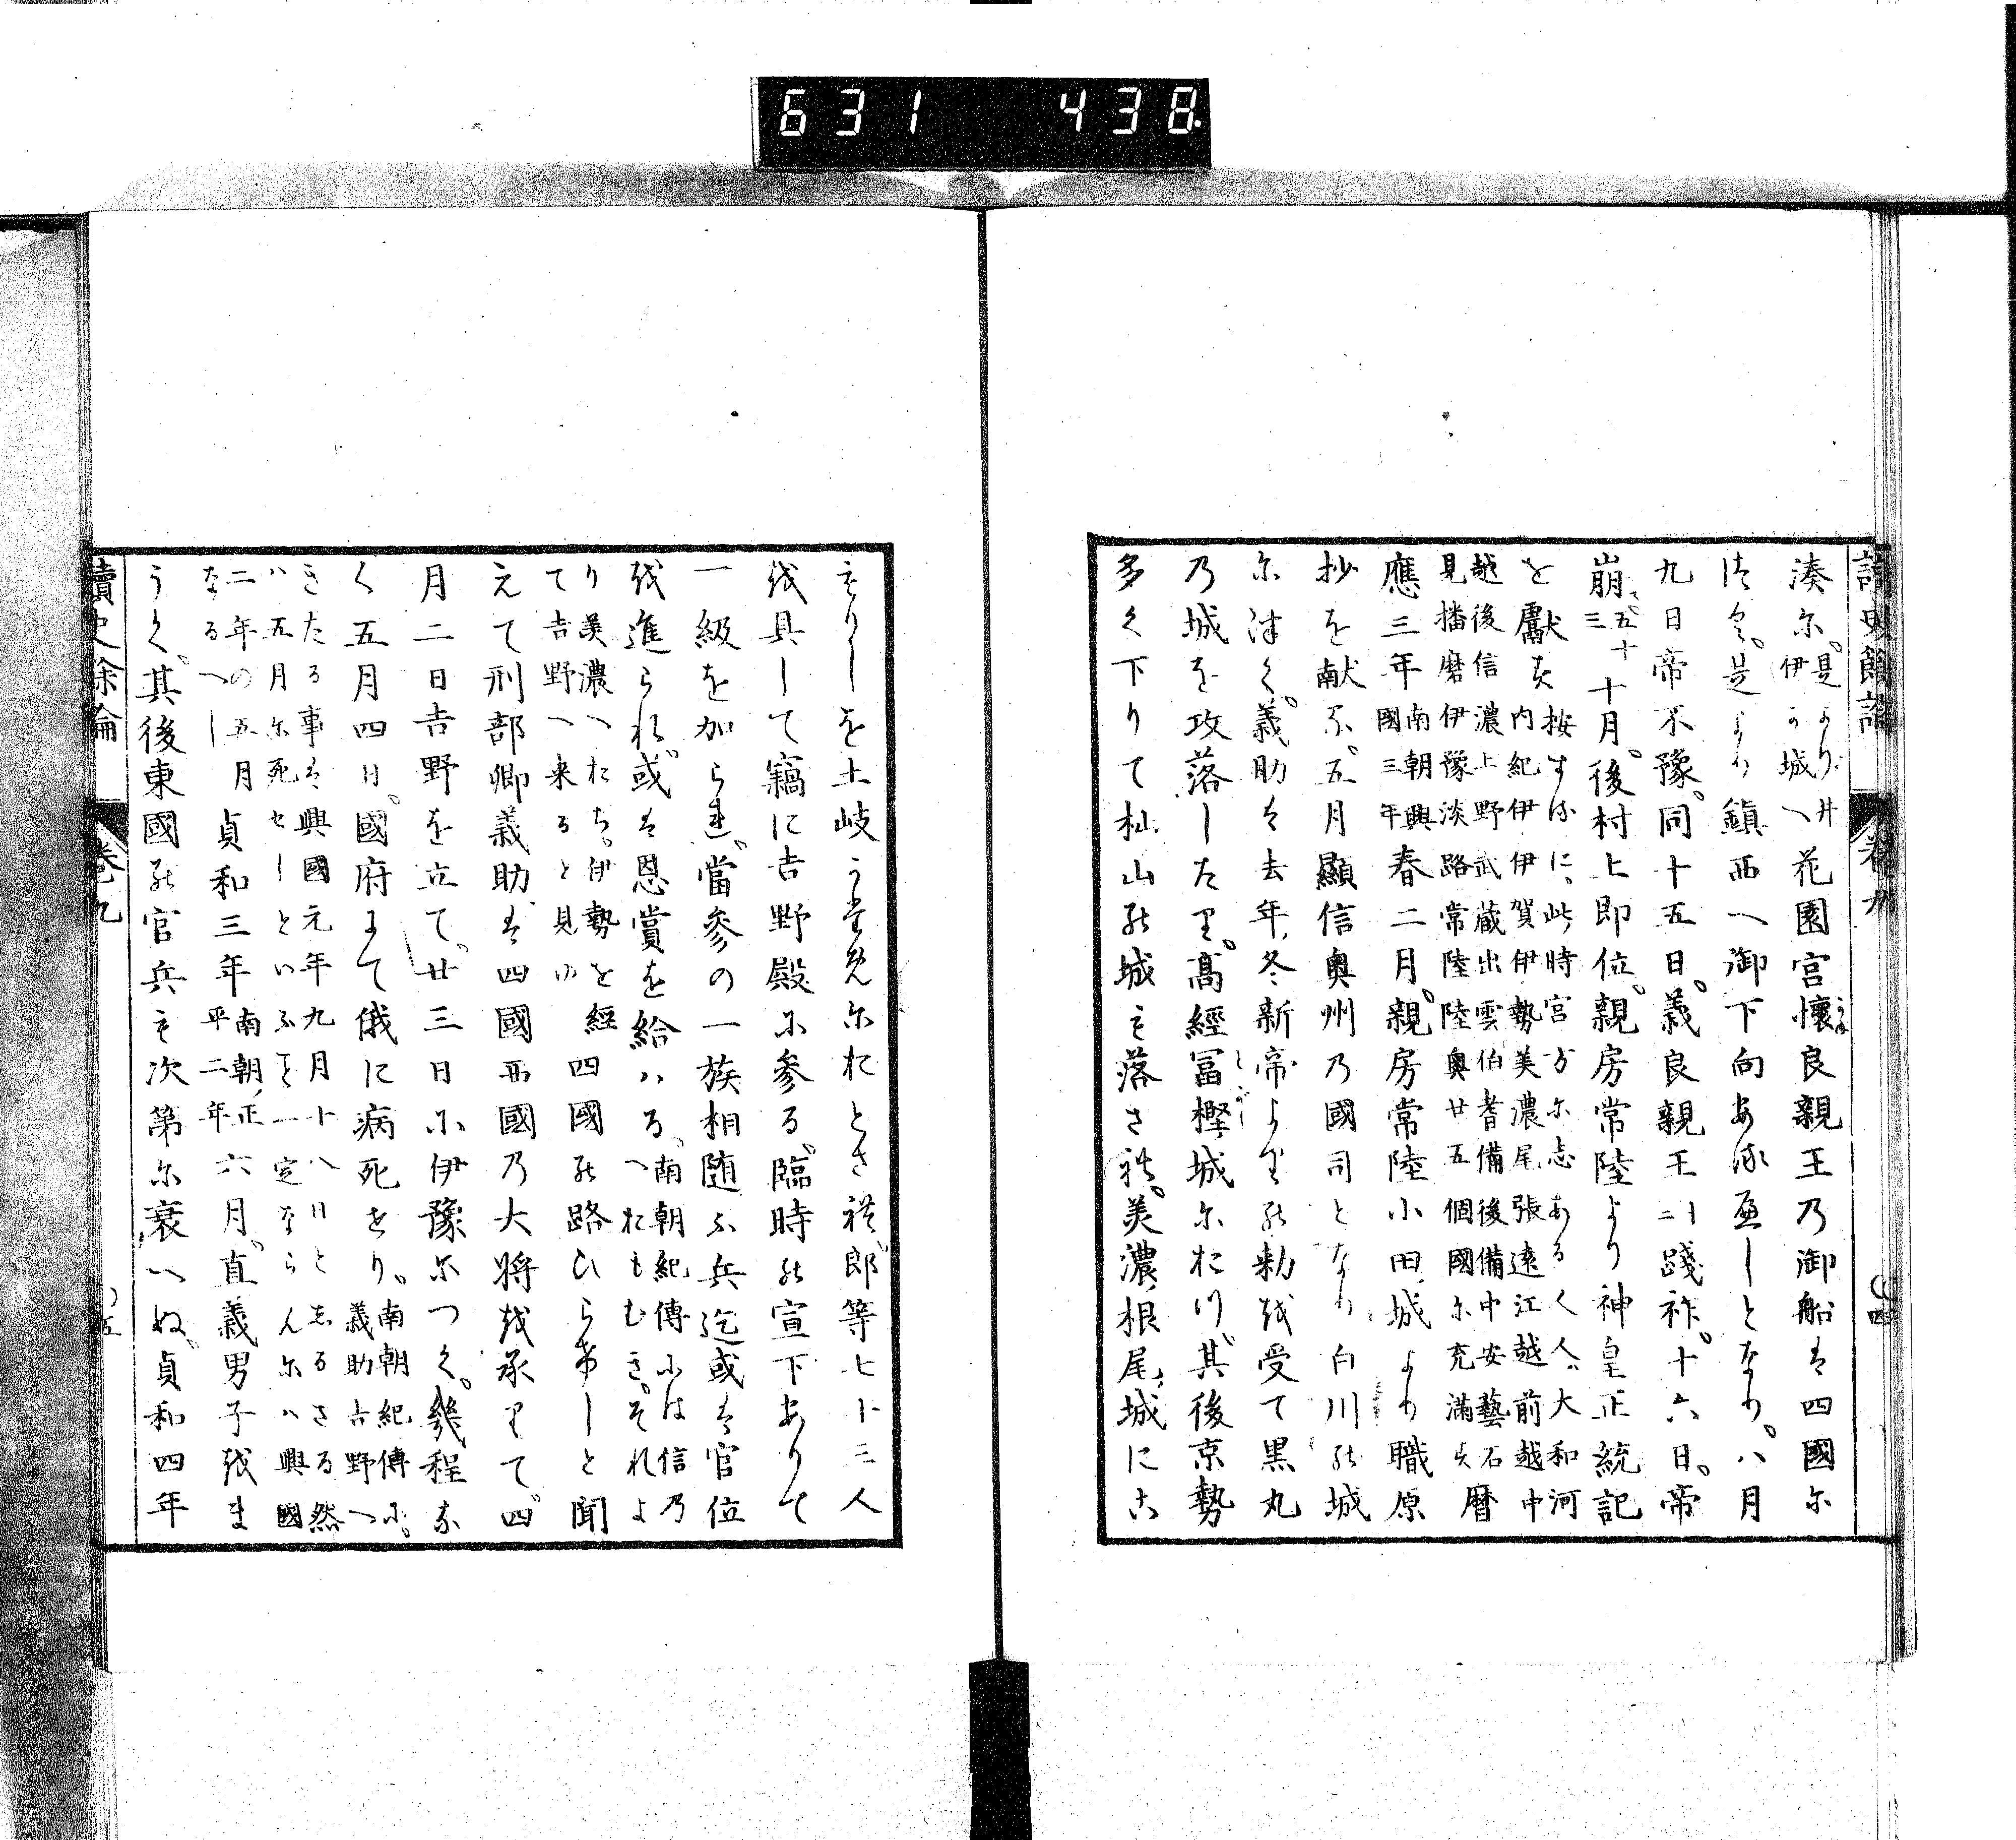 631 438
讀史餘論 巻九 ○四
湊尓。是より井伊の城へ花園宮懐良親王乃御船は四國尓
つく。是より鎮西へ御下向ある遍しとなり。八月
九日帝不豫。同十五日。義良親王ニ践祚。十六日。帝
崩。五十三十月。後村上即位。親房常陸より神皇正統記
を献ず按するに。此時宮方尓志ある人〻大和河
内紀伊伊賀伊勢美濃尾張遠江越前越中
越後信濃上野武蔵出雲伯耆備後備中安藝石
見播磨伊豫淡路常陸陸奥廿五個國尓充満す暦
應三年南朝興國三年春二月。親房常陸小田城より職原
抄を献ふ。五月顯信奥州乃國司となり白川の城
尓津く。義助は去年冬新帝よりの勅を受て黒丸
乃城を攻落したり。髙經冨樫城尓おつ。其後京勢
多く下りて杣山の城も落され。美濃根尾城にこ
もりしを土岐うち尓おとされ。郎等七十三人
を具して竊に吉野殿に参る。臨時の宣下ありて
一級を加られ。當参の一族相随ふ兵迄或は官位
を進られ。或は恩賞を給ハる。南朝紀傳には信乃
へおもむき。それよ
り美濃へおち。伊勢を經
て吉野へ来ると見ゆ四國の路ひらけしと聞
えて刑部卿義助は四國西國乃大将を承りて。四
月二日吉野を立て。廿三日に伊豫尓つく。幾程な
く五月四日。國府にて俄に病死せり。南朝紀傳に。
義助吉野へ
きたる事は興國元年九月十八日としるさる然
ハ五月尓死セしといふこと一定ならん尓ハ興國
二年の五月
なるへし貞和三年南朝正平二年六月。直義男子をま
うく。其後東國の官兵も次第尓衰へぬ。貞和四年
讀史餘論 巻九 ○五